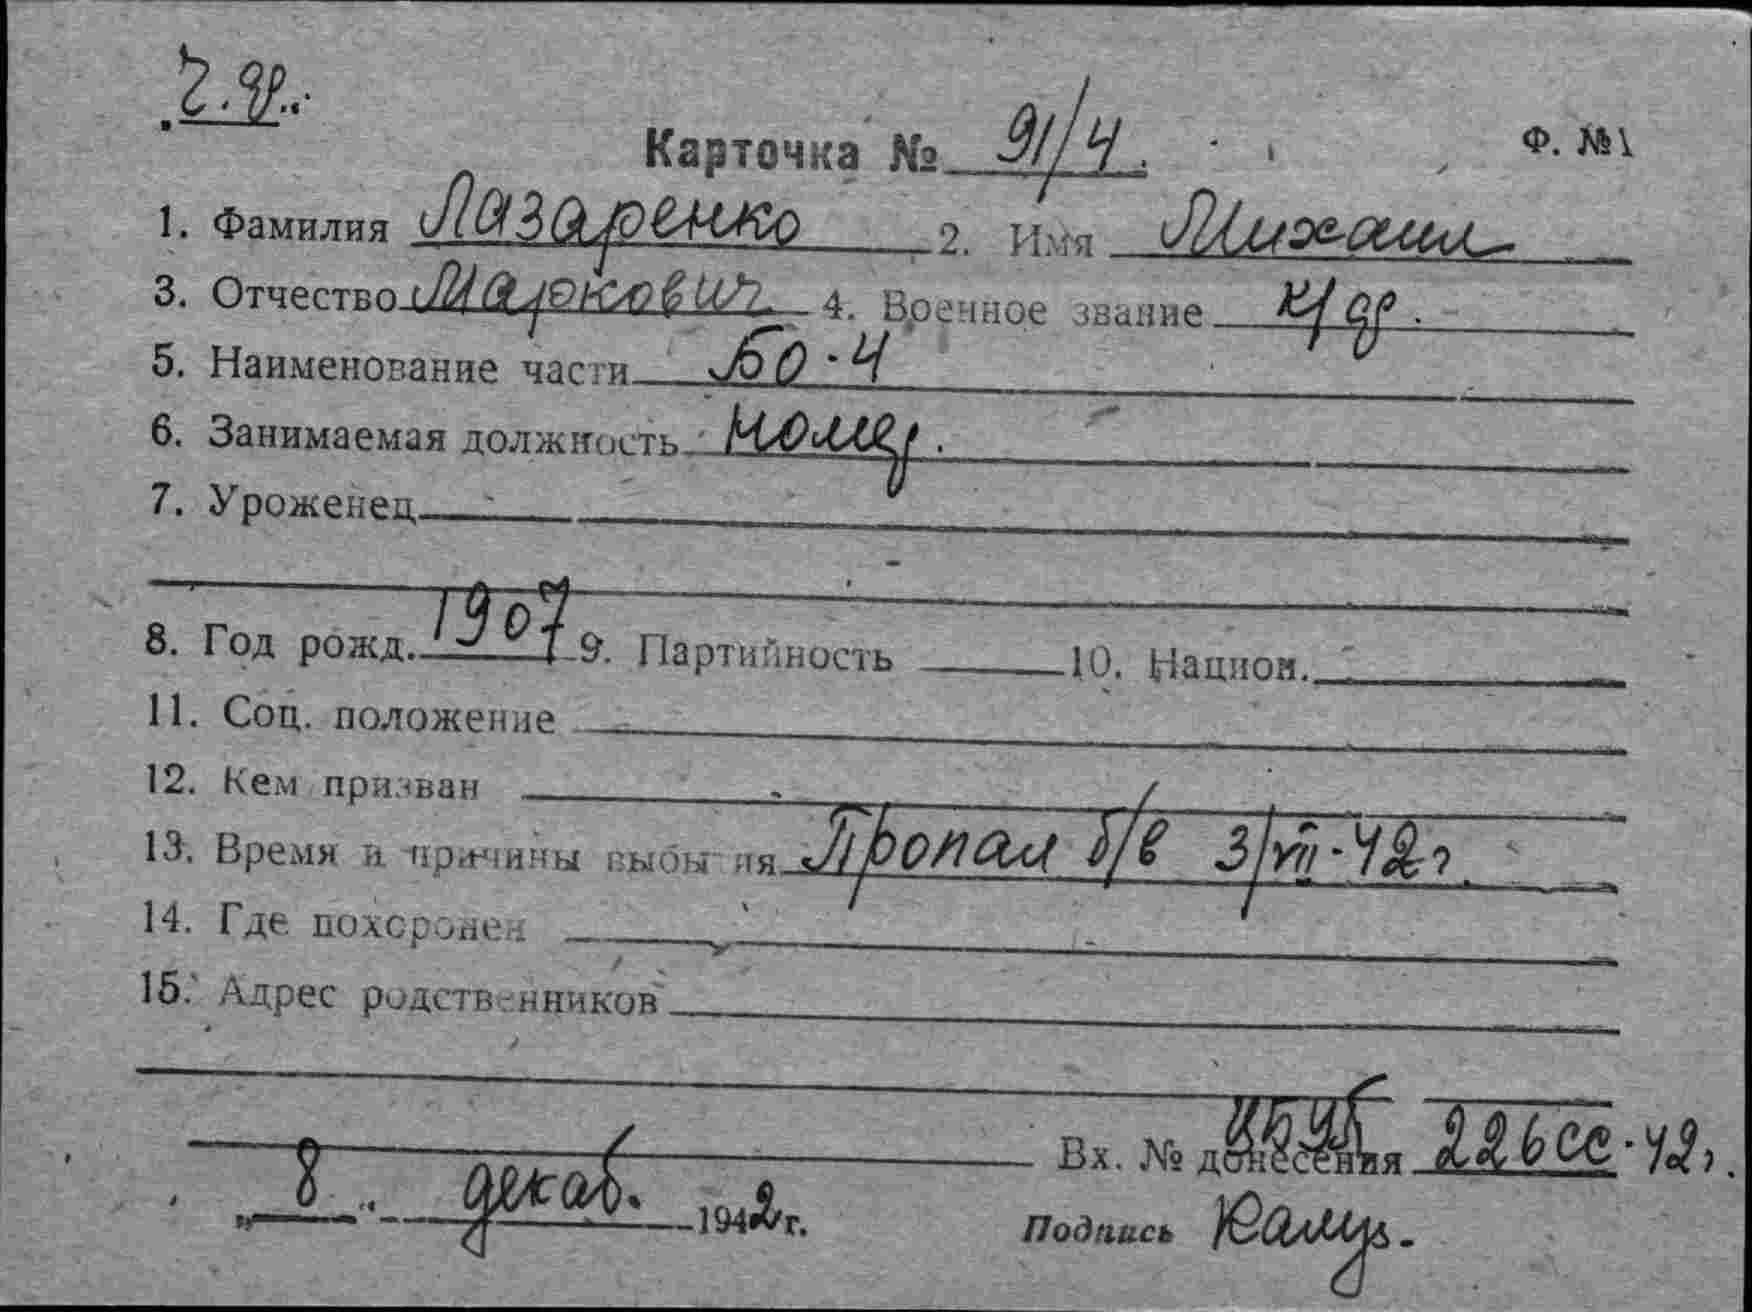 Карточка № 91/4. Ф. №1
1. Фамилия Лазаренко 2. Имя Михаил
3. Отчество Маркович 4. Военное звание к/др.
5. Наименование части БО-4
6. Занимаемая должность
7. Уроженец
8. Год рожд. 1907 9. Партийность 10. Национ.
11. Соц. положение
12. Кем призван
13. Время и причины выбытия Пропал б/в 3/VII-42г.
14. Где похоронен
15. Адрес родственников
Вх. № донесения 226сс-42г.
„8" декаб. 1942г. Подпись